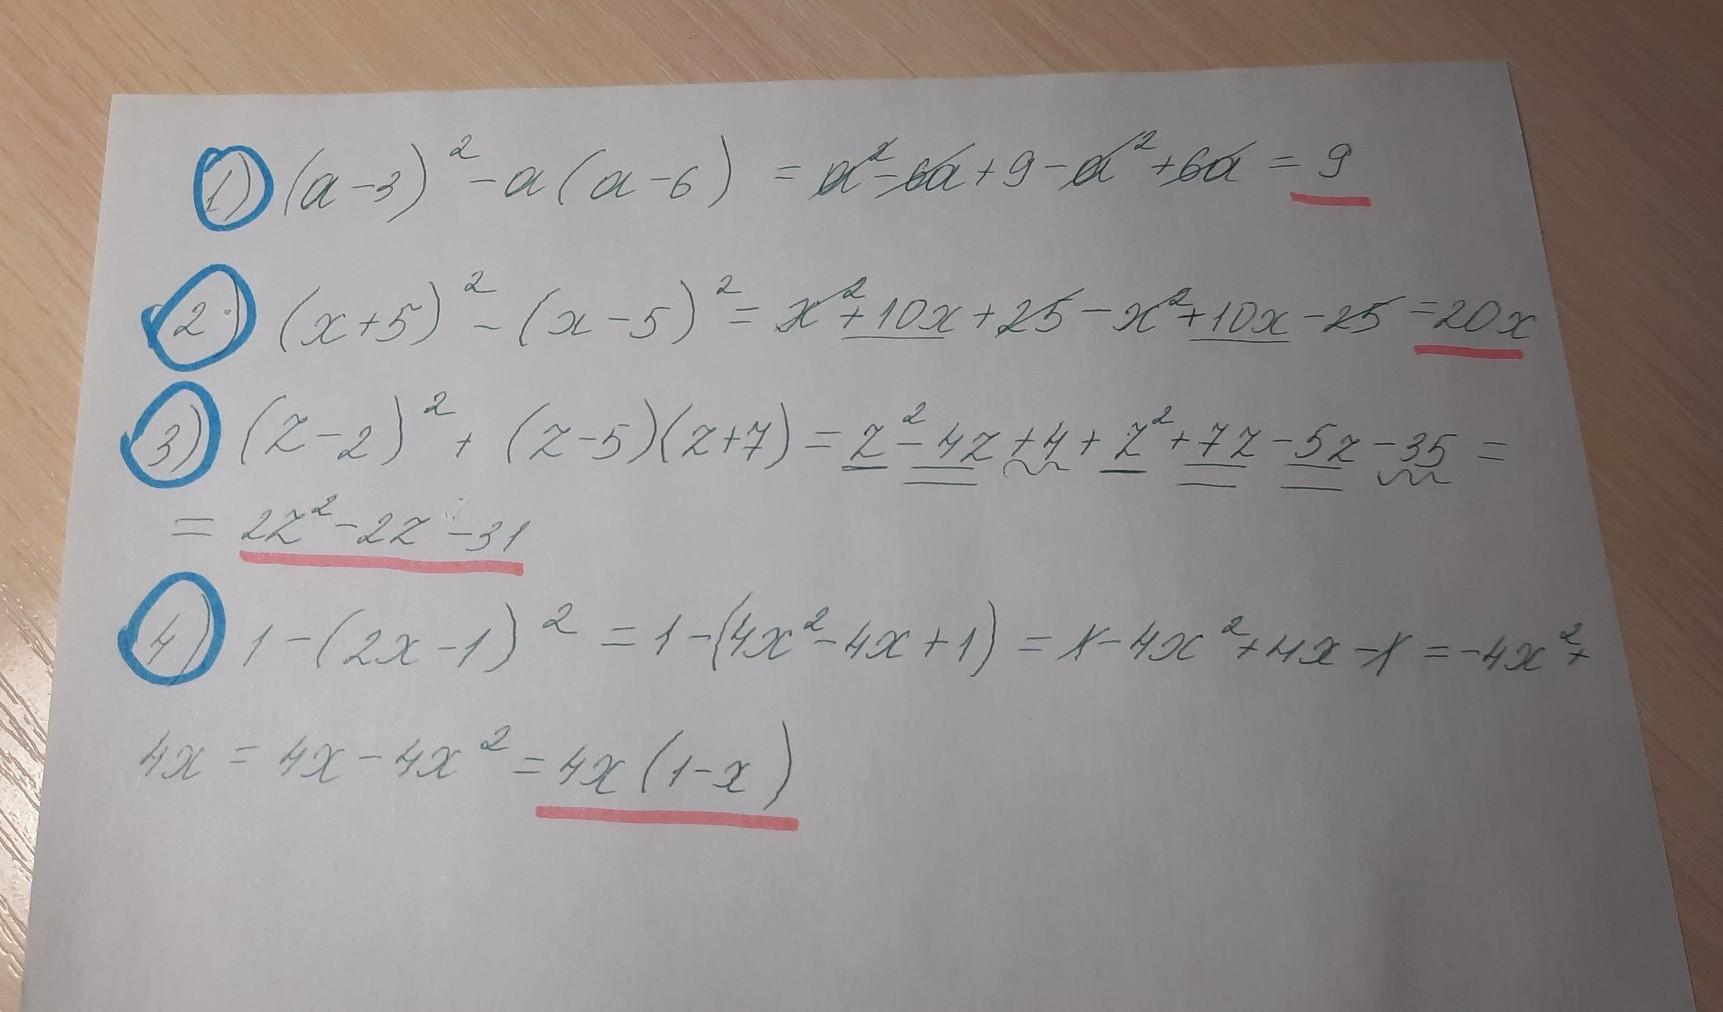 1) (a-3)² - a(a-6) = a² - 6a + 9 - a² + 6a = 9
2) (x+5)² - (x-5)² = x² + 10x + 25 - x² + 10x - 25 = 20x
3) (z-2)² + (z-5)(z+7) = z² - 4z + 4 + z² + 7z - 5z - 35 =
= 2z² - 2z - 31
4) 1 - (2x-1)² = 1 - (4x² - 4x + 1) = 1 - 4x² + 4x - 1 = -4x² +
4x = 4x - 4x² = 4x(1-x)